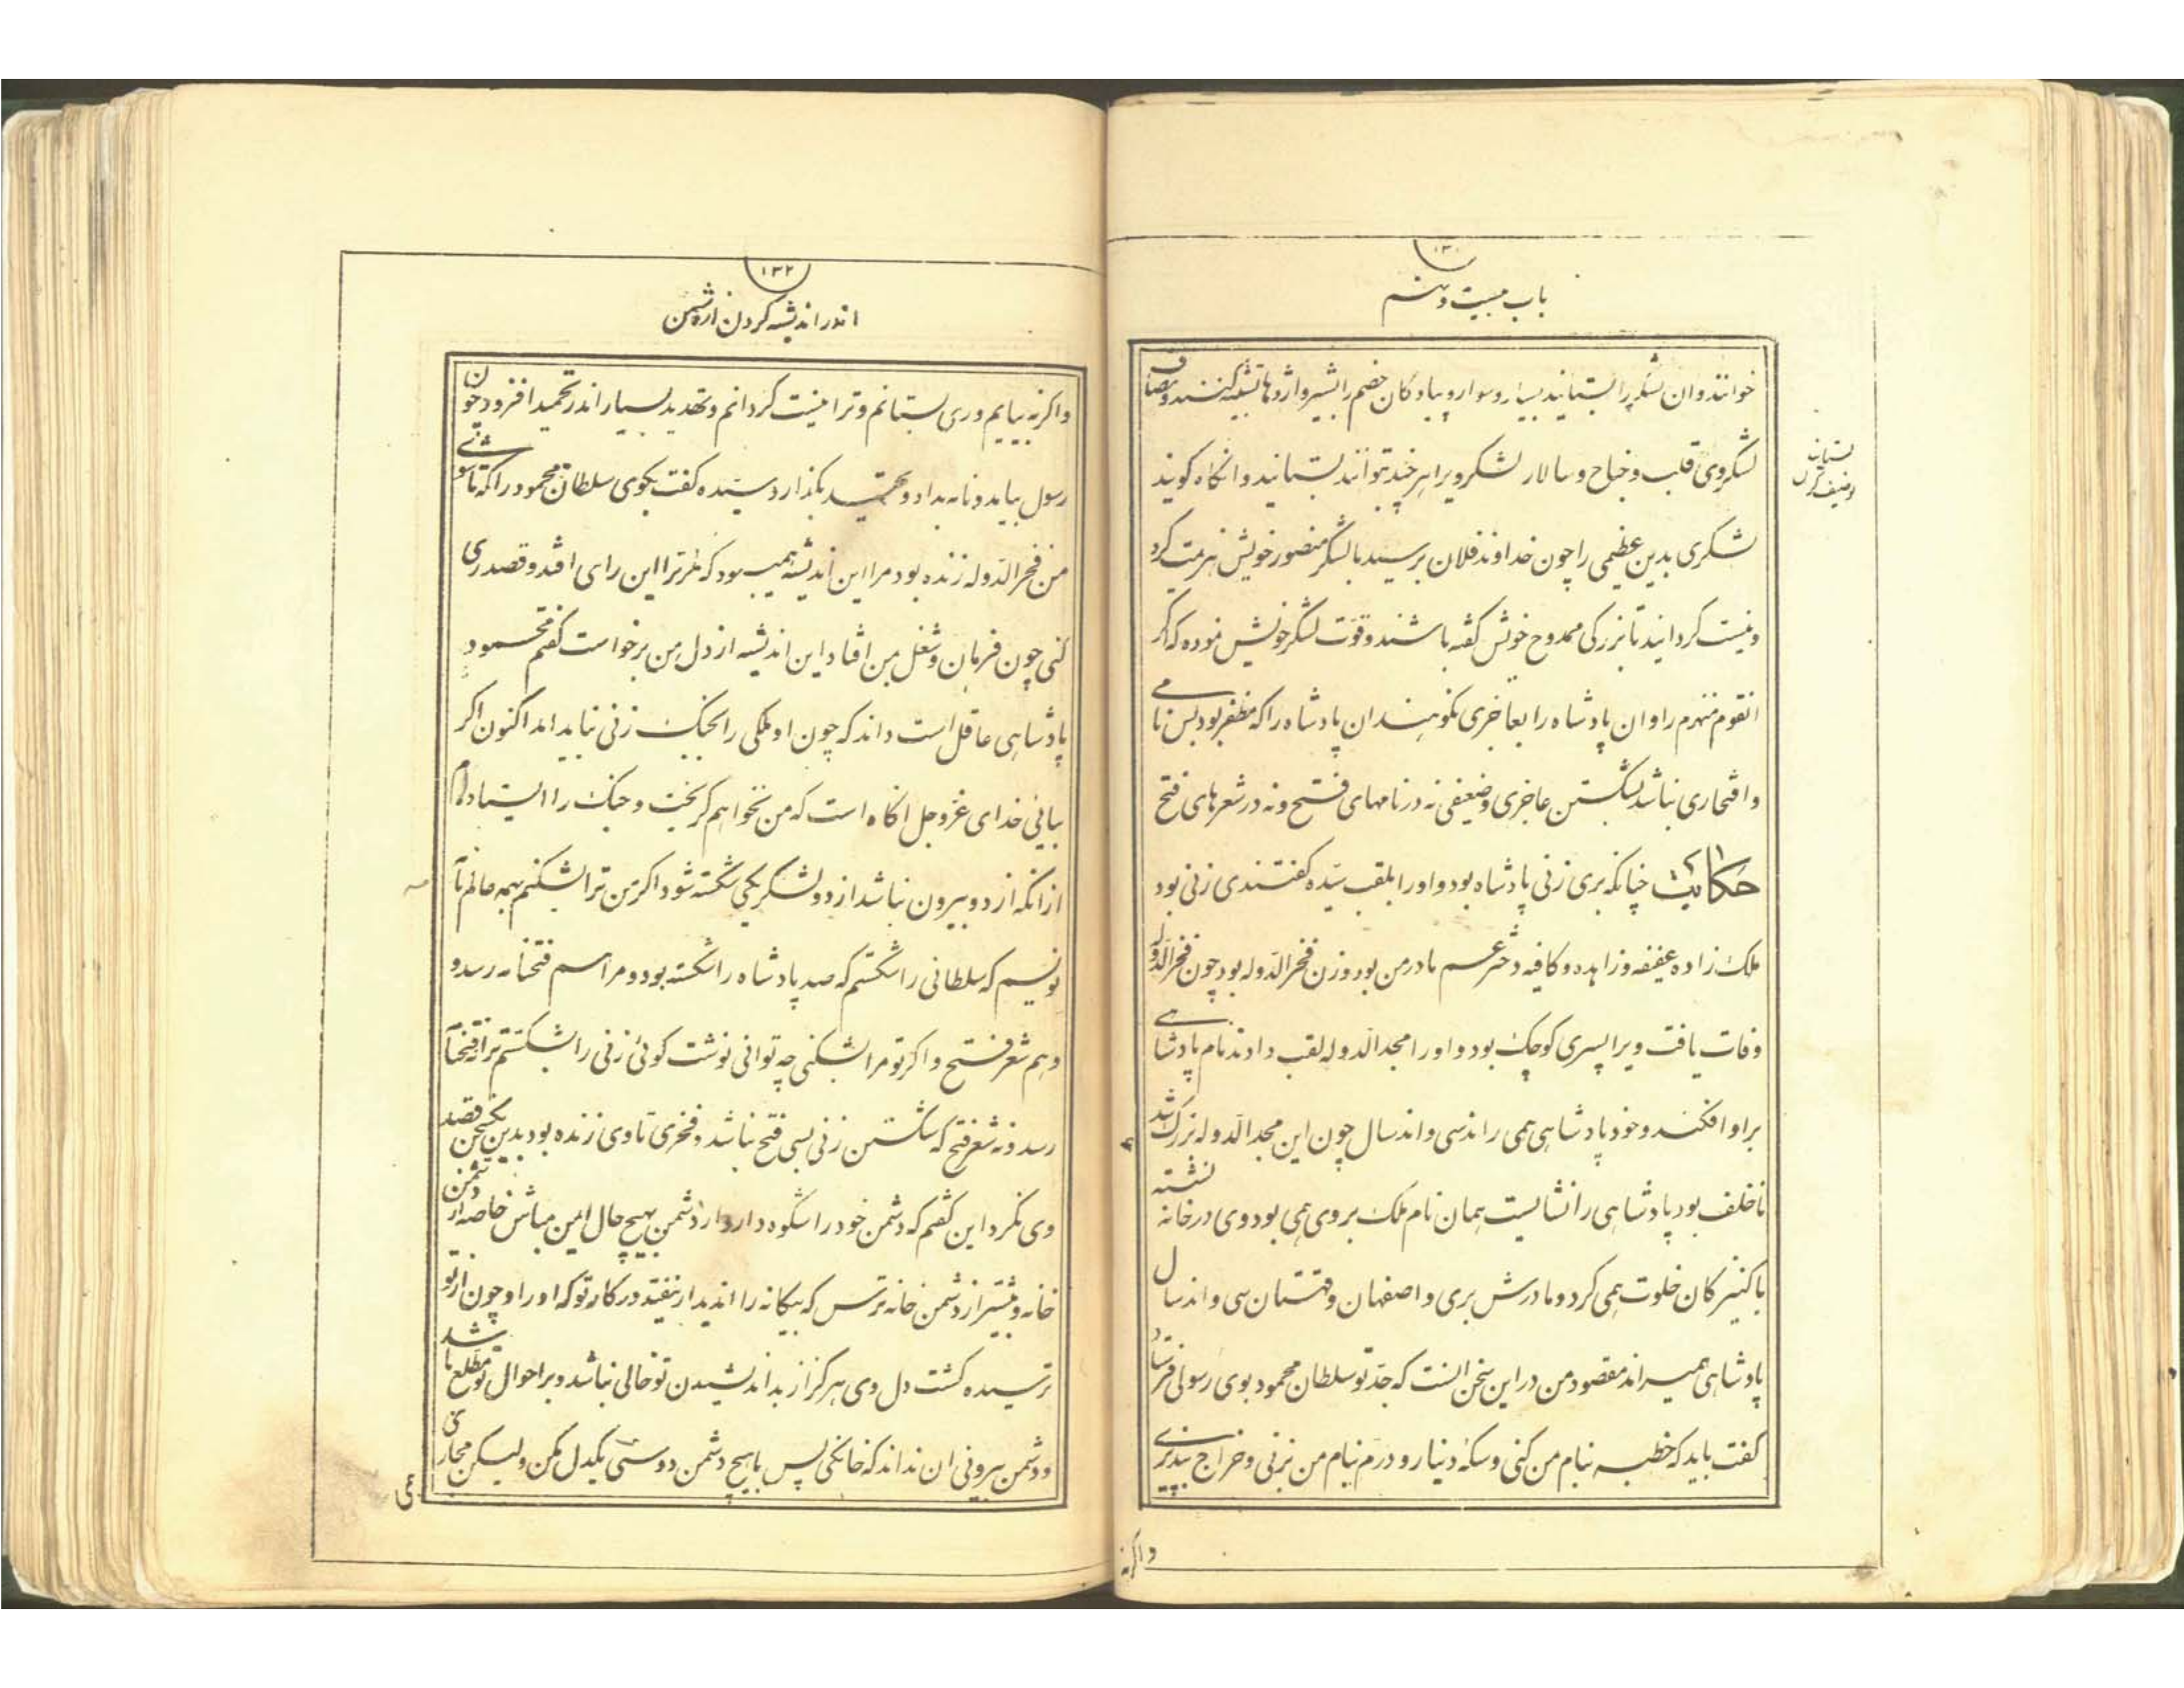 ۱۳۰
باب بیست و نهم
خوانند وان لشکر را بستانید بسیار و سوار و پیادکان خصم را بشیر و اژدها تشبیه کنند و مصاف
لشکر وی قلب و جناح و سالار لشکر ویرا هر چند توانند بستانید و انکاه کویند
لشکری بدین عظیمی را چون خداوند فلان برسید با لشکر منصور خویش هزیمت کرد
و نیست کردانید تا بزرکی ممدوح خویش کفته باشند و قوت لشکر خویش نموده که اکر
انقوم منهزم را و ان پادشاه را بعاجزی نکوهیند ان پادشاه را که مظفر بود بس نامی
و افتخاری نباشد بشکستن عاجزی و ضعیفی نه در نامهای فتح و نه در شعرهای فتح
حکایت چنانکه بری زنی پادشاه بود و او را بلقب سیّده کفتندی زنی بود
ملک زاده عفیفه و زاهده و کافیه دختر عم مادر من بود و زن فخر الدّوله بود چون فخر الدّوله
وفات یافت ویرا پسری کوچک بود و او را مجد الدوله لقب دادند نام پادشاهی
بر او افکند و خود پادشاهی همی راند سی و اند سال چون این مجد الدوله بزرک شد
ناخلف بود پادشاهی را نشایست همان نام ملک بر وی همی بود وی در خانه نشسته
با کنیزکان خلوت همی کرد و مادرش بری و اصفهان و قهستان سی و اند سال
پادشاهی همیراند مقصود من در این سخن انست که جدّ تو سلطان محمود بوی رسولی فرستاد
کفت باید که خطبه بنام من کنی و سکهٔ دینار و درم بنام من بزنی و خراج بپذیری
واکرنه
۱۳۲
اندر اندیشه کردن از دشمن
واکرنه بیایم و ری بستانم و ترا نیست کردانم و تهدید بسیار اندر تحمید افزود چون
رسول بیامد و نامه بداد و بکذارد سیّده کفت بکوی سلطان محمود را که تا شوی
من فخر الدّوله زنده بود مرا این اندیشه همی بود که مکر ترا این رای افتد و قصد ری
کنی چون فرمان و شغل بمن افتاد این اندیشه از دل من برخواست کفتم محمود
پادشاهی عاقل است داند که چون او ملکی را بجنک زنی نباید امد اکنون اکر
بیائی خدای عزّ و جل اکاه است که من نخواهم کریخت و جنک را ایستاده‌ام
از انکه از دو بیرون نباشد از دو لشکر یکی شکسته شود اکر من ترا بشکنم بهمه عالم نامه
نویسم که سلطانی را شکستم که صد پادشاه را شکسته بود و مرا سم فتحنامه رسد و
و هم شعر فتح و اکر تو مرا بشکنی چه توانی نوشت کوئی زنی را بشکستم ترا نه فتحنامه
رسد و نه شعر فتح که شکستن زنی بسی فتح نباشد و فخری تا وی زنده بود بدین یکسخن قصد
وی نکرد این کفتم که دشمن خود را شکوه دار و از دشمن بهیچ حال ایمن مباش خاصه از دشمن
خانه و بیشتر از دشمن خانه ترس که بیکانه را اندیدار نیفتد در کار تو که او را و چون از تو
ترسیده کشت دل وی هرکز از بد اندیشیدن تو خالی نباشد و بر احوال تو مطّلع باشد
و دشمن بیرونی ان نداند که خانکی پس با هیچ دشمن دوستی یکدل مکن ولیکن